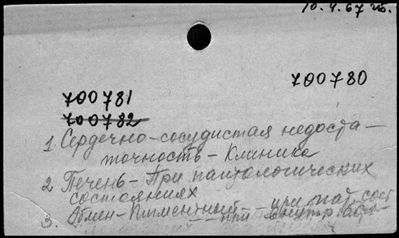 10.4.67 г.
700780
700781
700782
1. Сердечно-сосудистая недоста-
точность - Клиника
2. Печень - При патологических
состояниях
3. Обмен - Пигментный - при пат. сост
- при